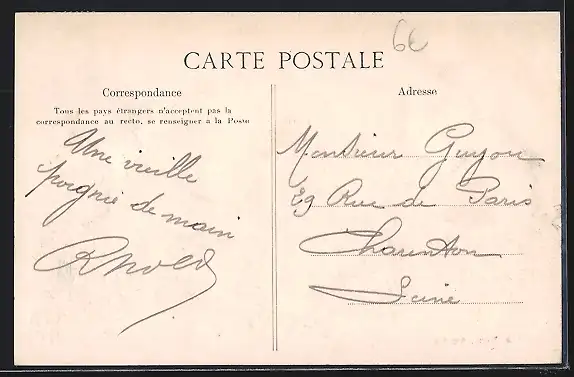 6€
CARTE POSTALE
Correspondance
Tous les pays étrangers n'acceptent pas la
correspondance au recto, se renseigner à la Poste
Une vieille
poignée de main
Adresse
Monsieur Guyou
29 Rue de Paris
Charenton
Seine